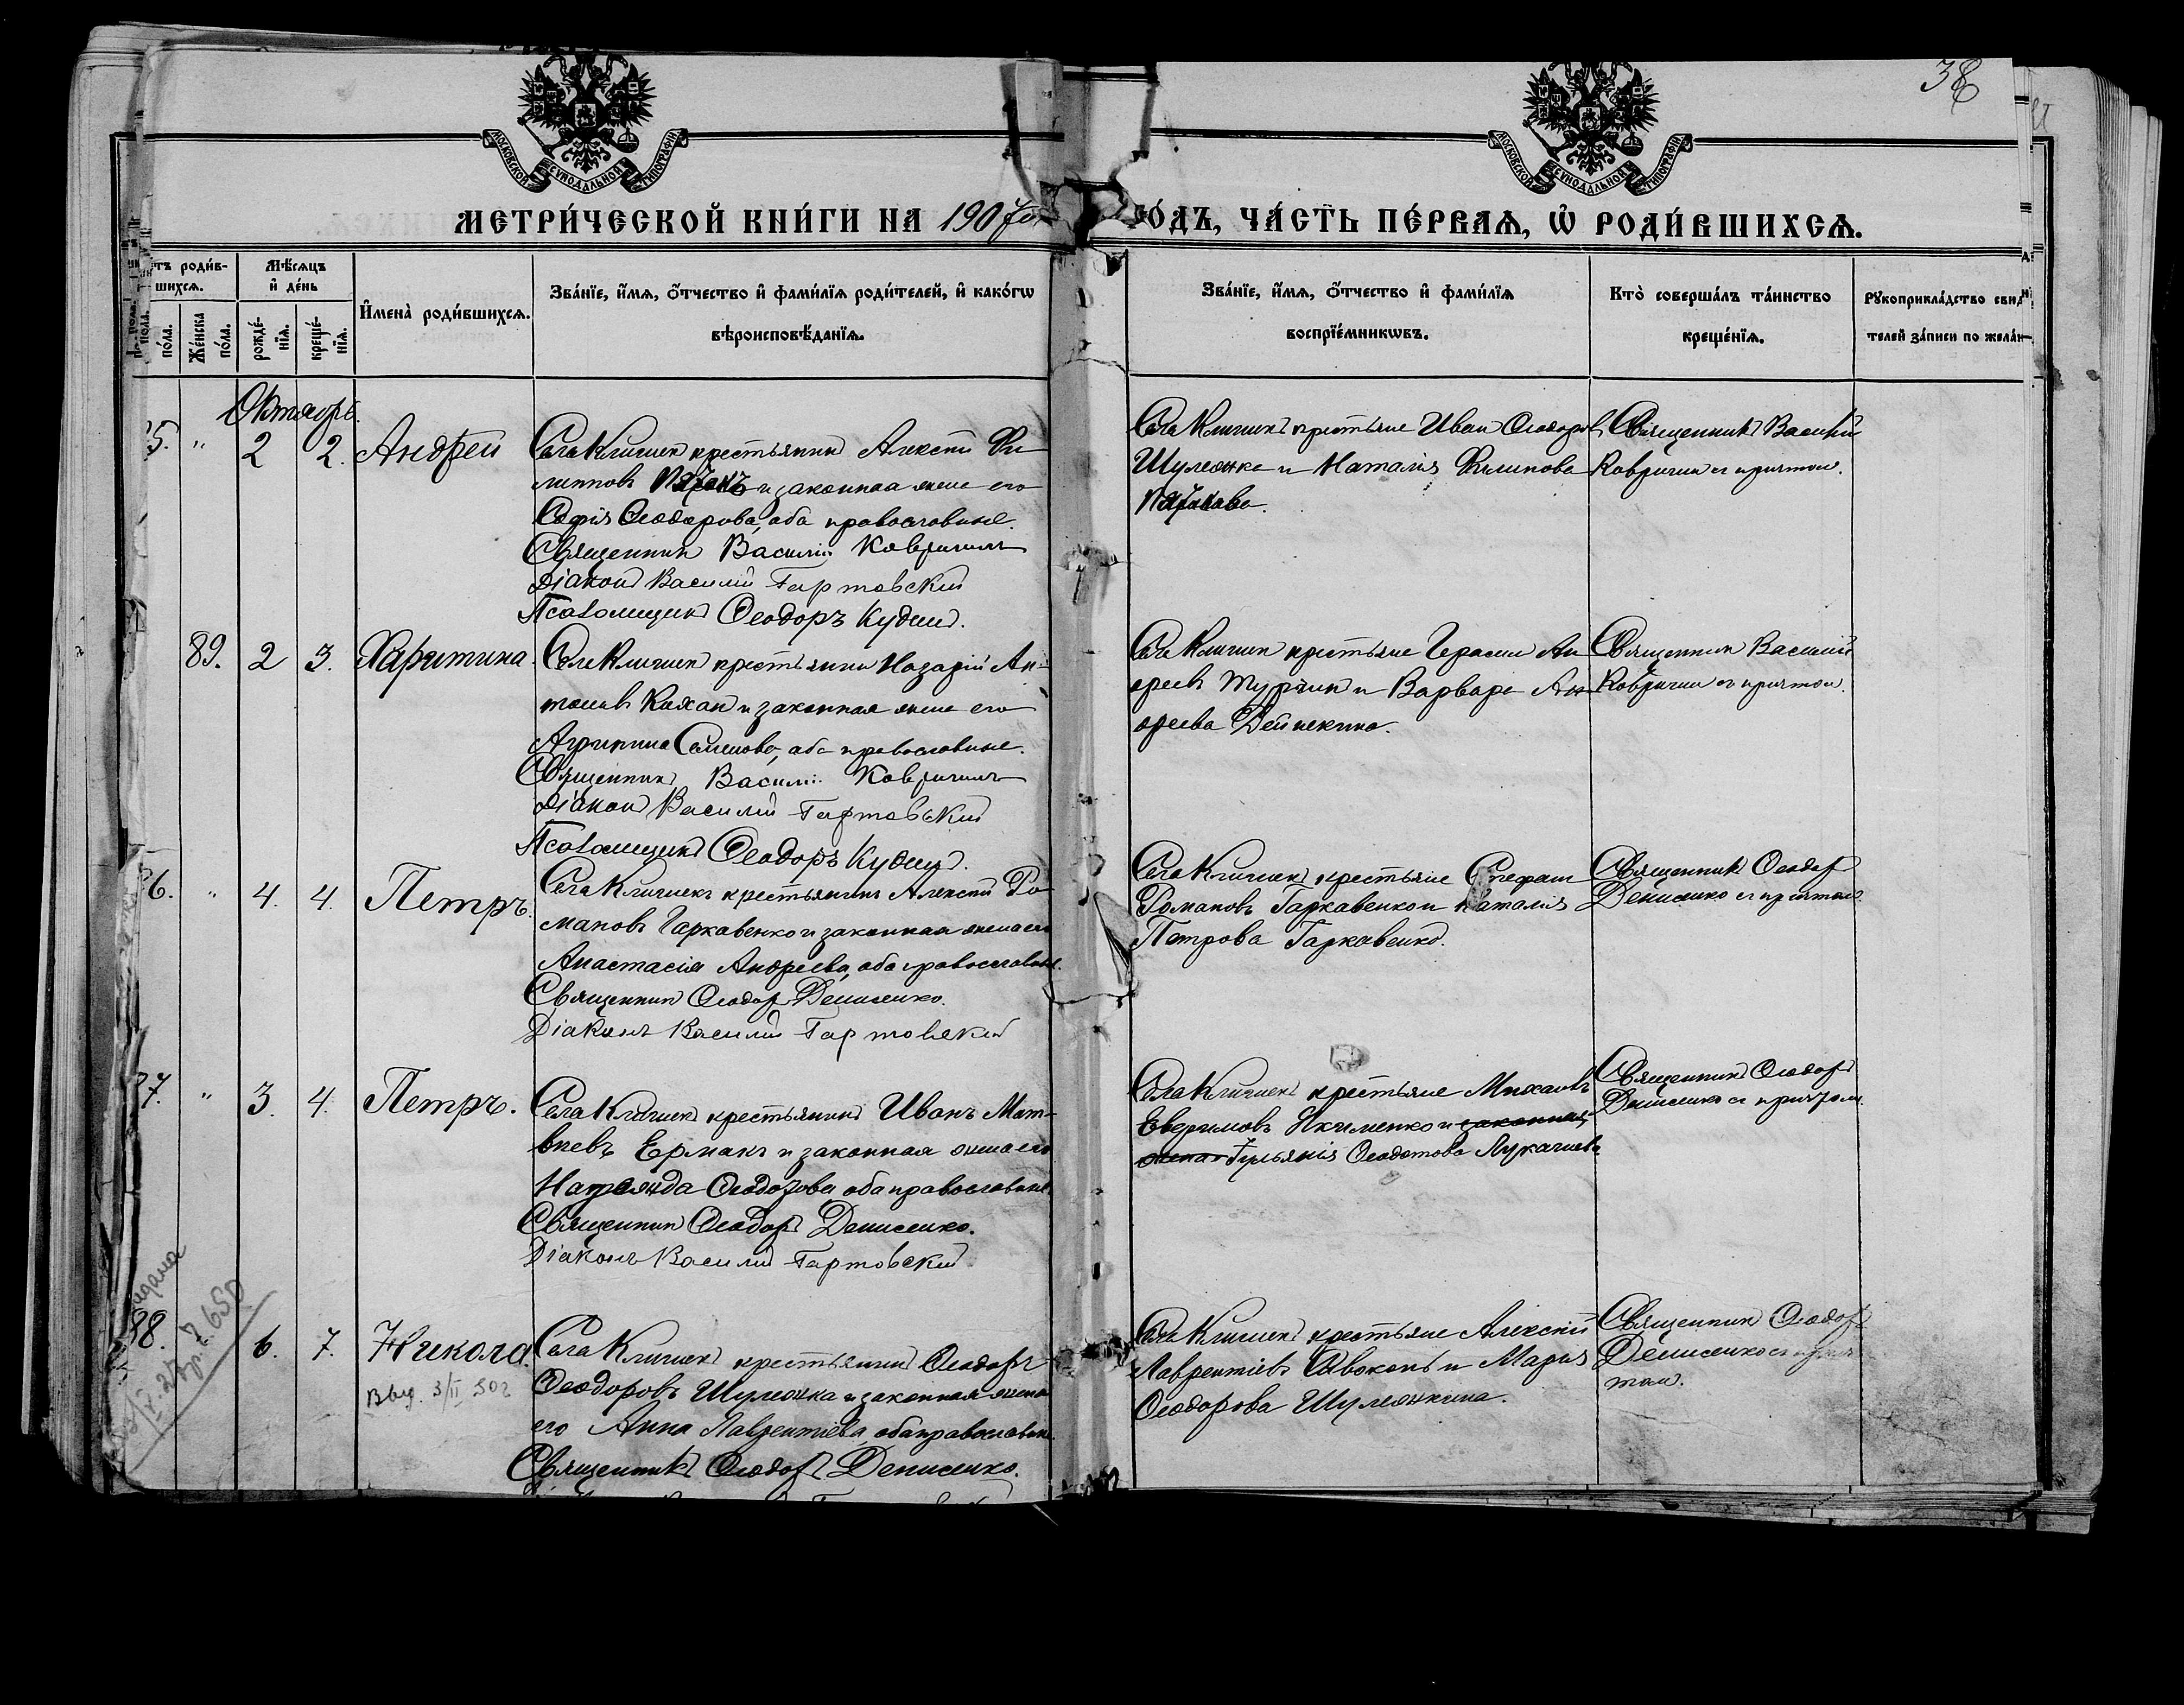 38
МОСКОВСКОЙ СѴНОДАЛЬНОЙ ТИПОГРАФІИ
МОСКОВСКОЙ СѴНОДАЛЬНОЙ ТИПОГРАФІИ
МЕТРИ́ЧЕСКОЙ КНИ́ГИ НА 1907
ГО́ДЪ, ЧА́СТЬ ПЕ́РВАѦ, Ѽ РОДИ́ВШИХСѦ.
роди́в-
шихсѧ.
Мѣ́сѧцъ
и҆ де́нь
И҆мена̀ роди́вшихсѧ.
Зва́нїе, и҆́мѧ, ѻ҆́тчество и҆ фами́лїѧ роди́телей, и҆ како́гѡ
вѣроисповѣ́данїѧ.
по́ла.
Же́нска
по́ла.
рожде́-
нїѧ.
креще́-
нїѧ.
Зва́нїе, и҆́мѧ, ѻ҆́тчество и҆ фами́лїѧ
воспрїе́мникѡвъ.
Кто̀ соверша́лъ та́инство
креще́нїѧ.
Рꙋкоприкла́дство свид
телей за́писи по жела́н
Октябрь
5. " 2 2. Андрей
Села Кличекъ крестьянинъ Алексѣй Фи-
липповъ и законная жена его
Софія Ѳеодорова, оба православные.
Священникъ Василій Ковригинъ
Діаконъ Василій Гартовскій
Псаломщикъ Ѳеодоръ Кудин.
Села Кличекъ крестьяне Иван Ѳеодоров
Шулежка и Наталія Филипова
Священникъ Василій
Ковригин с причтом.
89. 2 3. Харитина
Села Кличекъ крестьянинъ Назарій Ан-
тоновъ Кохан и законная жена его
Агрипина Семенова, оба православные.
Священникъ Василій Ковригинъ
Діаконъ Василій Гартовскій
Псаломщикъ Ѳеодоръ Кудин.
Села Кличекъ крестьяне Герасим Ан
дреевъ Турчин и Варвара Ан
дреева Дейнекина.
Священникъ Василій
Ковригин с причтом.
6. " 4. 4. Петръ.
Села Кличекъ крестьянинъ Алексѣй Ро
мановъ Гаркавенко и законная жена его
Анастасія Андреева, оба православные.
Священник Ѳеодор Денисенко.
Діаконъ Василій Гартовскій
Села Кличекъ крестьяне Стефан
Романовъ Гаркавенко и Наталія
Петрова Гаркавенко.
Священникъ Ѳеодор
Денисенко с причтом
7. " 3. 4. Петръ.
Села Кличекъ крестьянинъ Иванъ Мат-
вѣевъ Ермакъ и законная жена его
Ѳеодорова, оба православные
Священник Ѳеодоръ Денисенко.
Діаконъ Василій Гартовскій
Села Кличекъ крестьяне Михаилъ
Евфимовъ Якименко и законная
жена Ѳеодотова
Священникъ Ѳеодоръ
Денисенко с причтом.
88. 6. 7. Никола
Выд. 3/II 50 г
650
Села Кличекъ крестьянинъ Ѳеодоръ
Ѳеодоровъ Шулежка и законная жена
его Анна Лаврентіева, оба православн.
Священникъ Ѳеодоръ Денисенко.
Села Кличекъ крестьяне Алексѣй
Лаврентіевъ и Марія
Ѳеодорова Шулежкина.
Священник Ѳеодор
Денисенко с прич
том.